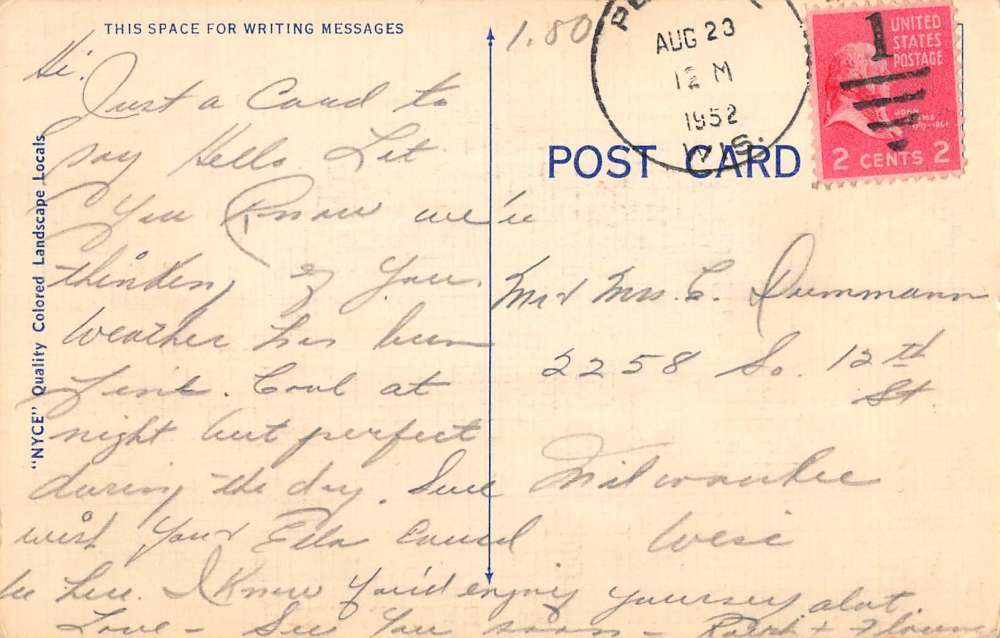 THIS SPACE FOR WRITING MESSAGES
"NYCE" Quality Colored Landscape Locals
Hi.
Just a Card to
say Hello Let
You Know we're
thinking of you.
Weather has been
fine. Cool at
night but perfect
during the day. Sure
wish you & Ella could
be here. I know you'd enjoy yourself alot.
Love - See You soon -
1.80
AUG 23
12 M
1952
WIS.
1
UNITED
STATES
POSTAGE
2 CENTS 2
POST CARD
Mr & Mrs. C. Dummann
2258 So. 12th
St
Milwaukee
Wisc